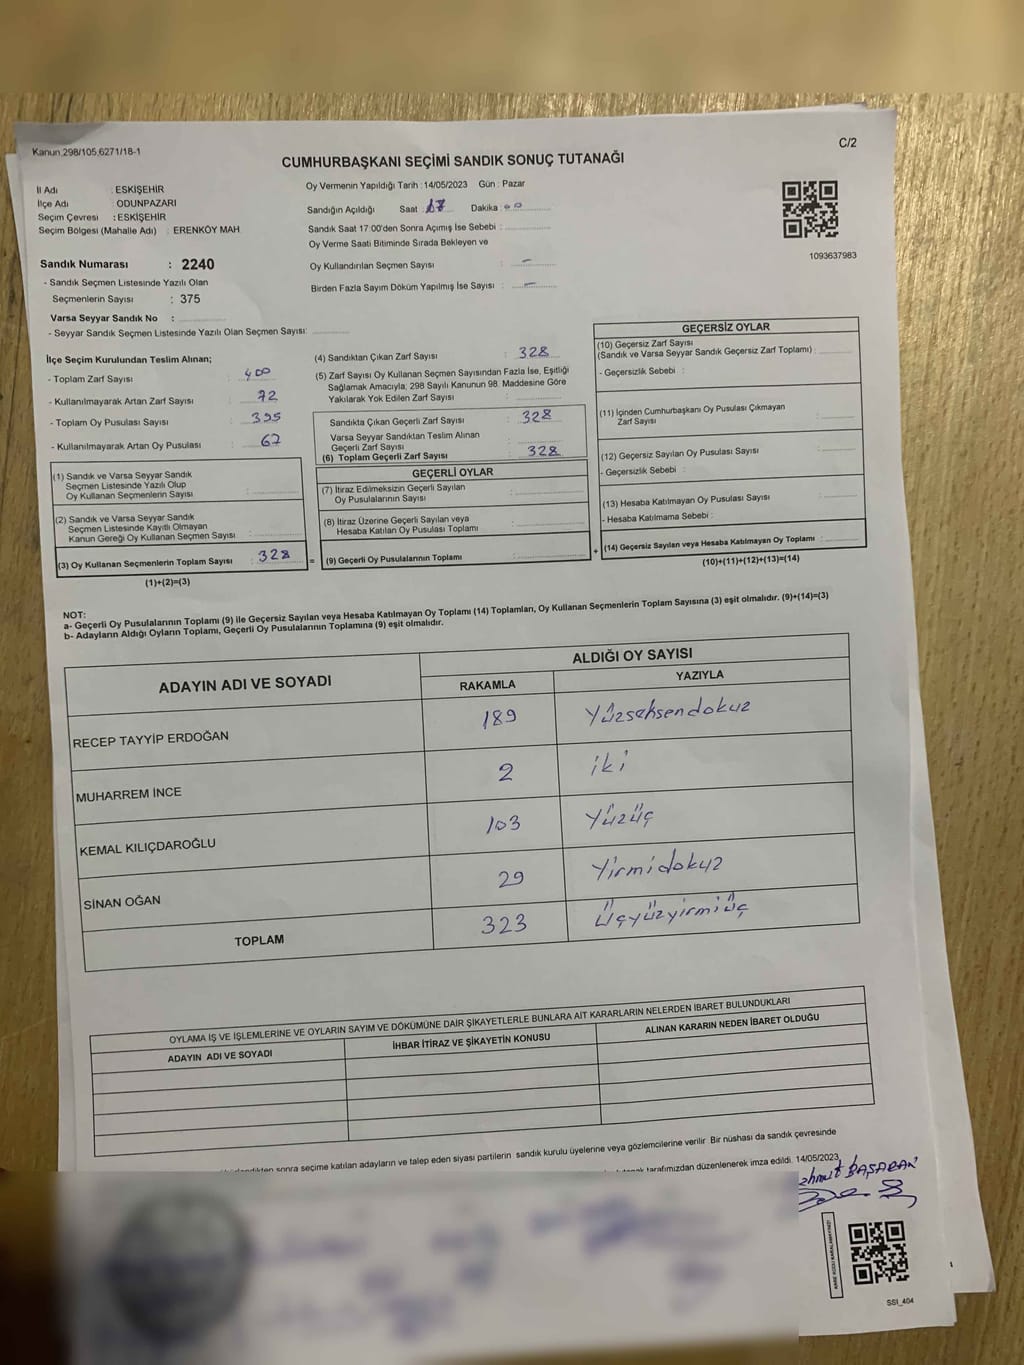 Kanun 298/105,6271/18-1
C/2
CUMHURBAŞKANI SEÇİMİ SANDIK SONUÇ TUTANAĞI
İl Adı : ESKİŞEHİR
İlçe Adı : ODUNPAZARI
Seçim Çevresi : ESKİŞEHİR
Seçim Bölgesi (Mahalle Adı) : ERENKÖY MAH
Sandık Numarası : 2240
- Sandık Seçmen Listesinde Yazılı Olan
Seçmenlerin Sayısı : 375
Varsa Seyyar Sandık No :
- Seyyar Sandık Seçmen Listesinde Yazılı Olan Seçmen Sayısı:
Oy Vermenin Yapıldığı Tarih : 14/05/2023 Gün : Pazar
Sandığın Açıldığı Saat : 17 Dakika : 00
Sandık Saat 17:00'den Sonra Açımış İse Sebebi :
Oy Verme Saati Bitiminde Sırada Bekleyen ve
Oy Kullandırılan Seçmen Sayısı : -
Birden Fazla Sayım Döküm Yapılmış İse Sayısı : -
1093637983
İlçe Seçim Kurulundan Teslim Alınan;
- Toplam Zarf Sayısı : 400
- Kullanılmayarak Artan Zarf Sayısı : 72
- Toplam Oy Pusulası Sayısı : 395
- Kullanılmayarak Artan Oy Pusulası : 67
(1) Sandık ve Varsa Seyyar Sandık
Seçmen Listesinde Yazılı Olup
Oy Kullanan Seçmenlerin Sayısı :
(2) Sandık ve Varsa Seyyar Sandık
Seçmen Listesinde Kayıtlı Olmayan
Kanun Gereği Oy Kullanan Seçmen Sayısı :
(3) Oy Kullanan Seçmenlerin Toplam Sayısı : 328
(1)+(2)=(3)
(4) Sandıktan Çıkan Zarf Sayısı : 328
(5) Zarf Sayısı Oy Kullanan Seçmen Sayısından Fazla İse, Eşitliği
Sağlamak Amacıyla, 298 Sayılı Kanunun 98. Maddesine Göre
Yakılarak Yok Edilen Zarf Sayısı :
Sandıkta Çıkan Geçerli Zarf Sayısı : 328
Varsa Seyyar Sandıktan Teslim Alınan
Geçerli Zarf Sayısı :
(6) Toplam Geçerli Zarf Sayısı : 328
GEÇERLİ OYLAR
(7) İtiraz Edilmeksizin Geçerli Sayılan
Oy Pusulalarının Sayısı :
(8) İtiraz Üzerine Geçerli Sayılan veya
Hesaba Katılan Oy Pusulası Toplamı :
= (9) Geçerli Oy Pusulalarının Toplamı :
GEÇERSİZ OYLAR
(10) Geçersiz Zarf Sayısı
(Sandık ve Varsa Seyyar Sandık Geçersiz Zarf Toplamı) :
- Geçersizlik Sebebi :
(11) İçinden Cumhurbaşkanı Oy Pusulası Çıkmayan
Zarf Sayısı :
(12) Geçersiz Sayılan Oy Pusulası Sayısı :
- Geçersizlik Sebebi :
(13) Hesaba Katılmayan Oy Pusulası Sayısı :
- Hesaba Katılmama Sebebi :
+ (14) Geçersiz Sayılan veya Hesaba Katılmayan Oy Toplamı :
(10)+(11)+(12)+(13)=(14)
NOT:
a- Geçerli Oy Pusulalarının Toplamı (9) ile Geçersiz Sayılan veya Hesaba Katılmayan Oy Toplamı (14) Toplamları, Oy Kullanan Seçmenlerin Toplam Sayısına (3) eşit olmalıdır. (9)+(14)=(3)
b- Adayların Aldığı Oyların Toplamı, Geçerli Oy Pusulalarının Toplamına (9) eşit olmalıdır.
ADAYIN ADI VE SOYADI
ALDIĞI OY SAYISI
RAKAMLA YAZIYLA
RECEP TAYYİP ERDOĞAN 189 Yüzseksendokuz
MUHARREM İNCE 2 iki
KEMAL KILIÇDAROĞLU 103 Yüzüç
SİNAN OĞAN 29 Yirmidokuz
TOPLAM 323 Üçyüzyirmiüç
OYLAMA İŞ VE İŞLEMLERİNE VE OYLARIN SAYIM VE DÖKÜMÜNE DAİR ŞİKAYETLERLE BUNLARA AİT KARARLARIN NELERDEN İBARET BULUNDUKLARI
ADAYIN ADI VE SOYADI İHBAR İTİRAZ VE ŞİKAYETİN KONUSU ALINAN KARARIN NEDEN İBARET OLDUĞU
sonra seçime katılan adayların ve talep eden siyasi partilerin sandık kurulu üyelerine veya gözlemcilerine verilir. Bir nüshası da sandık çevresinde
tarafımızdan düzenlenerek imza edildi. 14/05/2023
BAŞARAN
SSI_404